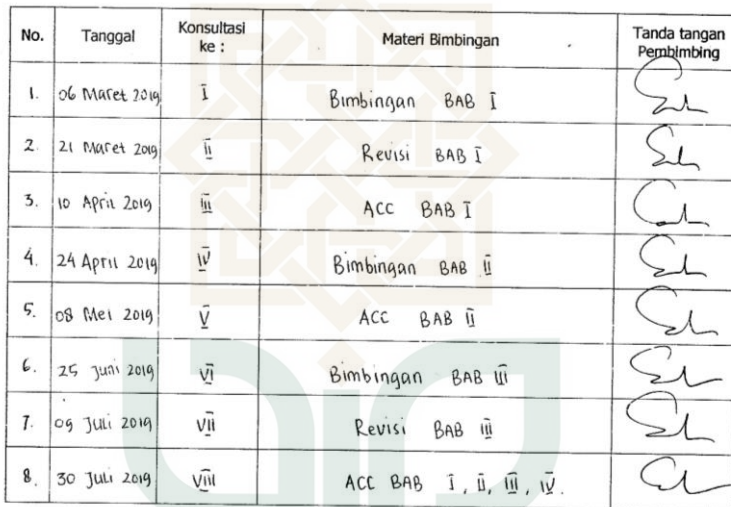 No. Tanggal Konsultasi ke : Materi Bimbingan Tanda tangan Pembimbing
1. 06 Maret 2019 I Bimbingan BAB I
2. 21 Maret 2019 II Revisi BAB I
3. 10 April 2019 III ACC BAB I
4. 24 April 2019 IV Bimbingan BAB II
5. 08 Mei 2019 V ACC BAB II
6. 25 Juni 2019 VI Bimbingan BAB III
7. 09 Juli 2019 VII Revisi BAB III
8. 30 Juli 2019 VIII ACC BAB I, II, III, IV.